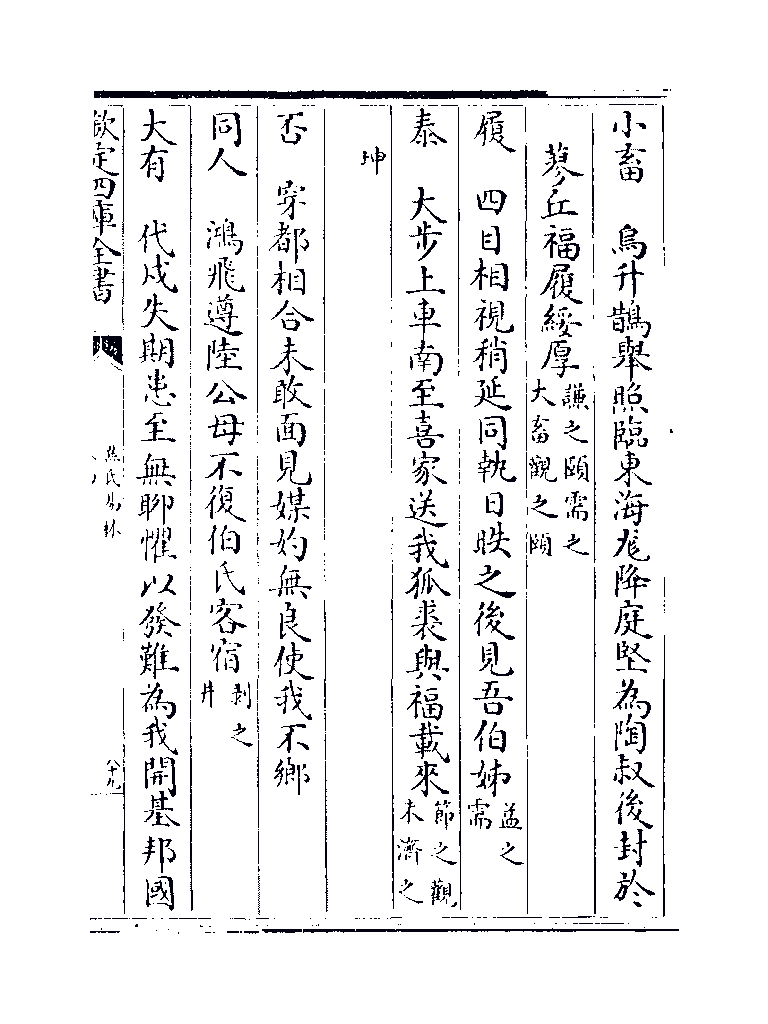 小畜　烏升鵲舉照臨東海尨降庭堅為陶叔後封於
蓼丘福履綏厚謙之頤需之大畜觀之頤
履　四目相視稍延同執日昳之後見吾伯姊益之需
泰　大步上車南至喜家送我狐裘與福載來節之觀未濟之
坤
否　穿都相合未敢面見媒妁無良使我不鄉
同人　鴻飛遵陸公母不復伯氏客宿剥之井
大有　代戍失期患至無聊懼以發難為我開基邦國
欽定四庫全書
焦氏易林
八十九